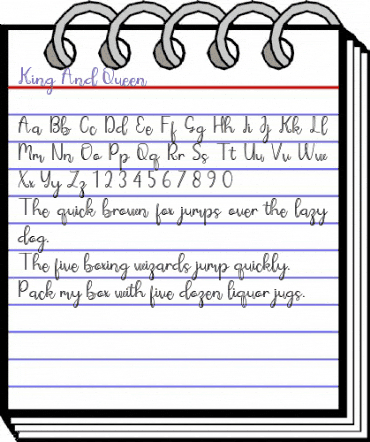 King And Queen
Aa Bb Cc Dd Ee Ff Gg Hh Ii Jj Kk Ll
Mm Nn Oo Pp Qq Rr Ss Tt Uu Vv Ww
Xx Yy Zz 1 2 3 4 5 6 7 8 9 0
The quick brown fox jumps over the lazy
dog.
The five boxing wizards jump quickly.
Pack my box with five dozen liquor jugs.